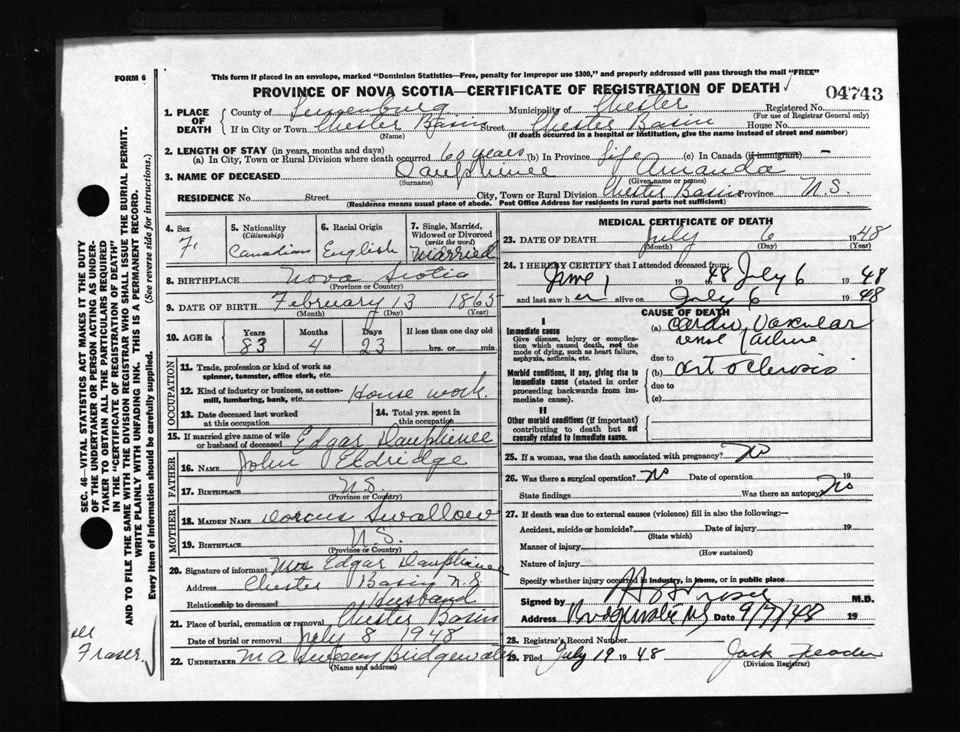 FORM 6
This form if placed in an envelope, marked "Dominion Statistics—Free, penalty for improper use $300," and properly addressed will pass through the mail "FREE"
PROVINCE OF NOVA SCOTIA—CERTIFICATE OF REGISTRATION OF DEATH
04743
1. PLACE OF DEATH County of Lunenburg Municipality of Chester Registered No.
(For use of Registrar General only)
If in City or Town Chester Basin Street Chester Basin House No.
(Name) (If death occurred in a hospital or institution, give the name instead of street and number)
2. LENGTH OF STAY (in years, months and days)
(a) In City, Town or Rural Division where death occurred 60 years (b) In Province Life (c) In Canada (if immigrant) —
3. NAME OF DECEASED Dauphinee Amanda
(Surname) (Given name or names)
RESIDENCE No. Street City, Town or Rural Division Chester Basin Province N.S.
(Residence means usual place of abode. Post Office Address for residents in rural parts not sufficient)
4. Sex F.
5. Nationality (Citizenship) Canadian
6. Racial Origin English
7. Single, Married, Widowed or Divorced (write the word) Married
8. BIRTHPLACE Nova Scotia
(Province or Country)
9. DATE OF BIRTH February 13 1865
(Month) (Day) (Year)
10. AGE in Years Months Days If less than one day old
83 4 23 hrs. or min.
OCCUPATION
11. Trade, profession or kind of work as spinner, teamster, office clerk, etc.
12. Kind of industry or business, as cotton-mill, lumbering, bank, etc. House work.
13. Date deceased last worked at this occupation
14. Total yrs. spent in this occupation
15. If married give name of wife or husband of deceased Edgar Dauphinee
FATHER
16. NAME John Eldridge
17. BIRTHPLACE N.S.
(Province or Country)
MOTHER
18. MAIDEN NAME Dorcus Swallow
19. BIRTHPLACE N.S.
(Province or Country)
20. Signature of informant Mrs Edgar Dauphinee
Address Chester Basin N.S
Relationship to deceased Husband
21. Place of burial, cremation or removal Chester Basin
Date of burial or removal July 8 1948
22. UNDERTAKER M A Bridgewater
(Name and address)
MEDICAL CERTIFICATE OF DEATH
23. DATE OF DEATH July 6 1948
(Month) (Day) (Year)
24. I HEREBY CERTIFY that I attended deceased from:
June 1 1948 July 6 1948
and last saw her alive on July 6 1948
CAUSE OF DEATH
I
Immediate cause
Give disease, injury or complication which caused death, not the mode of dying, such as heart failure, asphyxia, asthenia, etc.
(a) Cardio Vascular renal failure
due to
Morbid conditions, if any, giving rise to immediate cause (stated in order proceeding backwards from immediate cause).
(b) art sclerosis
due to
(c)
II
Other morbid conditions (if important) contributing to death but not causally related to immediate cause.
25. If a woman, was the death associated with pregnancy? No
26. Was there a surgical operation? No Date of operation 19
State findings Was there an autopsy? No
27. If death was due to external causes (violence) fill in also the following:—
Accident, suicide or homicide? Date of injury 19
(State which)
Manner of injury
(How sustained)
Nature of injury
Specify whether injury occurred in industry, in home, or in public place
Signed by M.D.
Address Bridgewater NS Date 9/7/48 19
28. Registrar's Record Number
29. Filed July 19 1948
(Division Registrar)
SEC. 46—VITAL STATISTICS ACT MAKES IT THE DUTY
OF THE UNDERTAKER OR PERSON ACTING AS UNDER-
TAKER TO OBTAIN ALL THE PARTICULARS REQUIRED
IN THE "CERTIFICATE OF REGISTRATION OF DEATH"
AND TO FILE THE SAME WITH THE DIVISION REGISTRAR WHO SHALL ISSUE THE BURIAL PERMIT.
WRITE PLAINLY WITH UNFADING INK. THIS IS A PERMANENT RECORD.
Every item of information should be carefully supplied. (See reverse side for instructions.)
Fraser